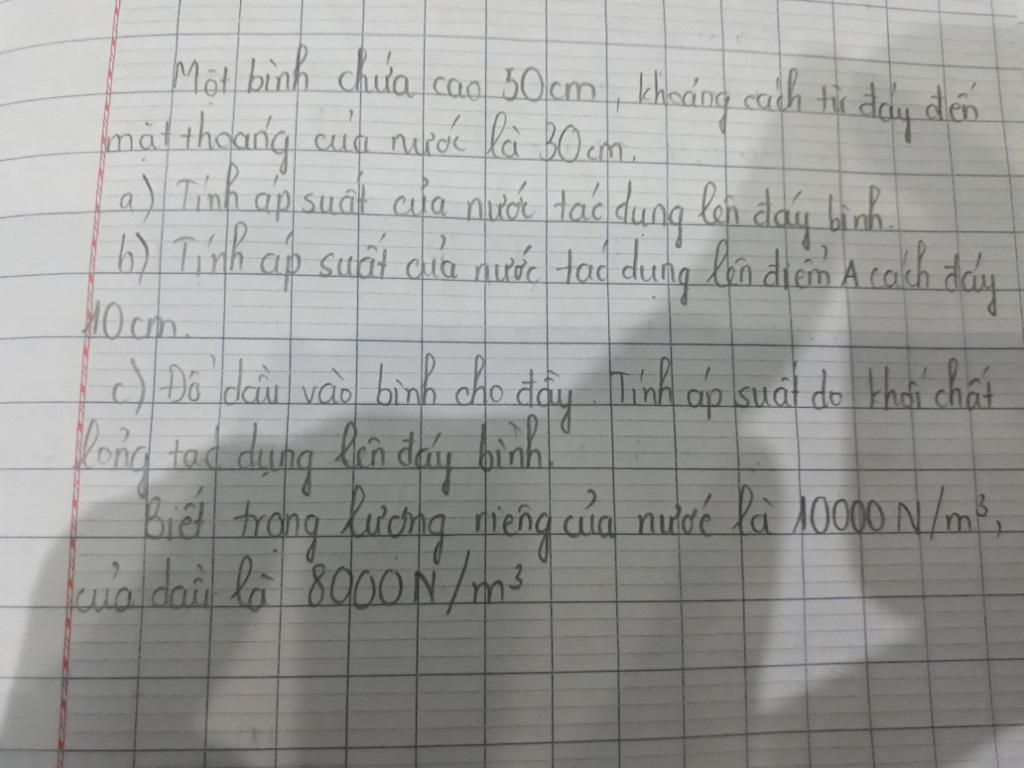 Một bình chứa cao 50cm, khoảng cách từ đáy đến
mặt thoáng của nước là 30cm.
a) Tính áp suất của nước tác dụng lên đáy bình.
b) Tính áp suất của nước tác dụng lên điểm A cách đáy
10cm.
c) Đổ dầu vào bình cho đầy. Tính áp suất do khối chất
lỏng tác dụng lên đáy bình.
Biết trọng lượng riêng của nước là 10000N/m³,
của dầu là 8000N/m³